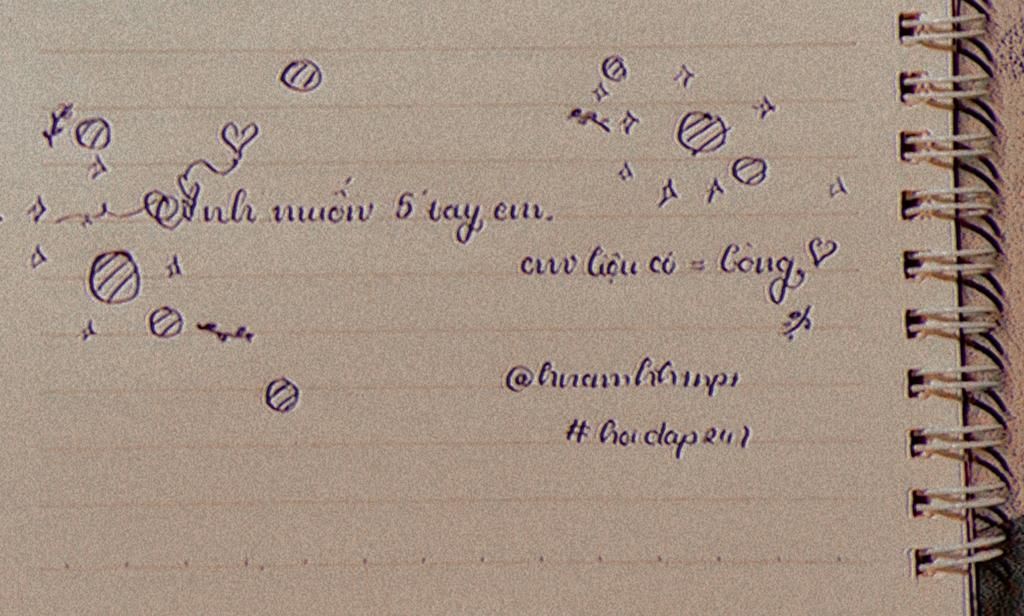 Anh muốn 5 tay em.
em liệu có = lòng,
#hoidap247